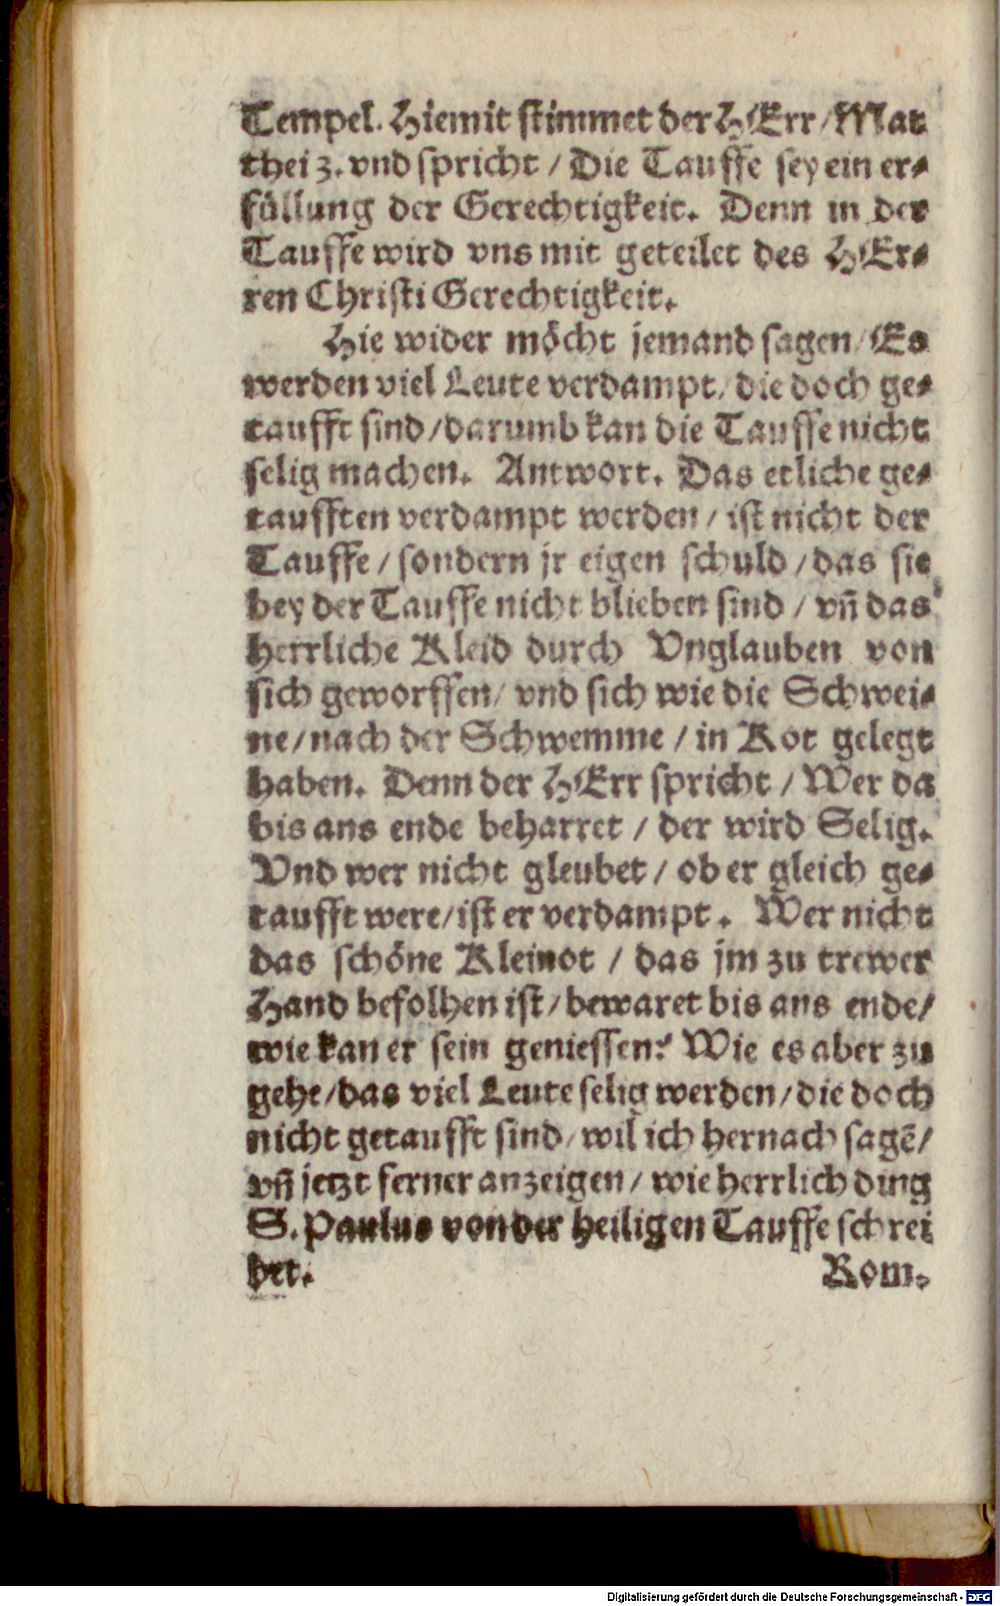 Tempel. Hiemit stimmet der HErr / Mat
thei 3. vnd spricht / Die Tauffe sey ein er⸗
füllung der Gerechtigkeit. Denn in der
Tauffe wird vns mit geteilet des HEr⸗
ren Christi Gerechtigkeit.
Hie wider möcht jemand sagen / Es
werden viel Leute verdampt / die doch ge⸗
taufft sind / darumb kan die Tauffe nicht
selig machen. Antwort. Das etliche ge⸗
taufften verdampt werden / ist nicht der
Tauffe / sondern jr eigen schuld / das sie
bey der Tauffe nicht blieben sind / vñ das
herrliche Kleid durch Vnglauben von
sich geworffen / vnd sich wie die Schwei⸗
ne / nach der Schwemme / in Kot gelegt
haben. Denn der HErr spricht / Wer da
bis ans ende beharret / der wird Selig.
Vnd wer nicht gleubet / ob er gleich ge⸗
taufft were / ist er verdampt. Wer nicht
das schöne Kleinot / das jm zu trewer
Hand befolhen ist / bewaret bis ans ende /
wie kan er sein geniessen? Wie es aber zu
gehe / das viel Leute selig werden / die doch
nicht getaufft sind / wil ich hernach sagē /
vñ jetzt ferner anzeigen / wie herrlich ding
S. Paulus von der heiligen Tauffe schrei
bet. Rom.
Digitalisierung gefördert durch die Deutsche Forschungsgemeinschaft - DFG